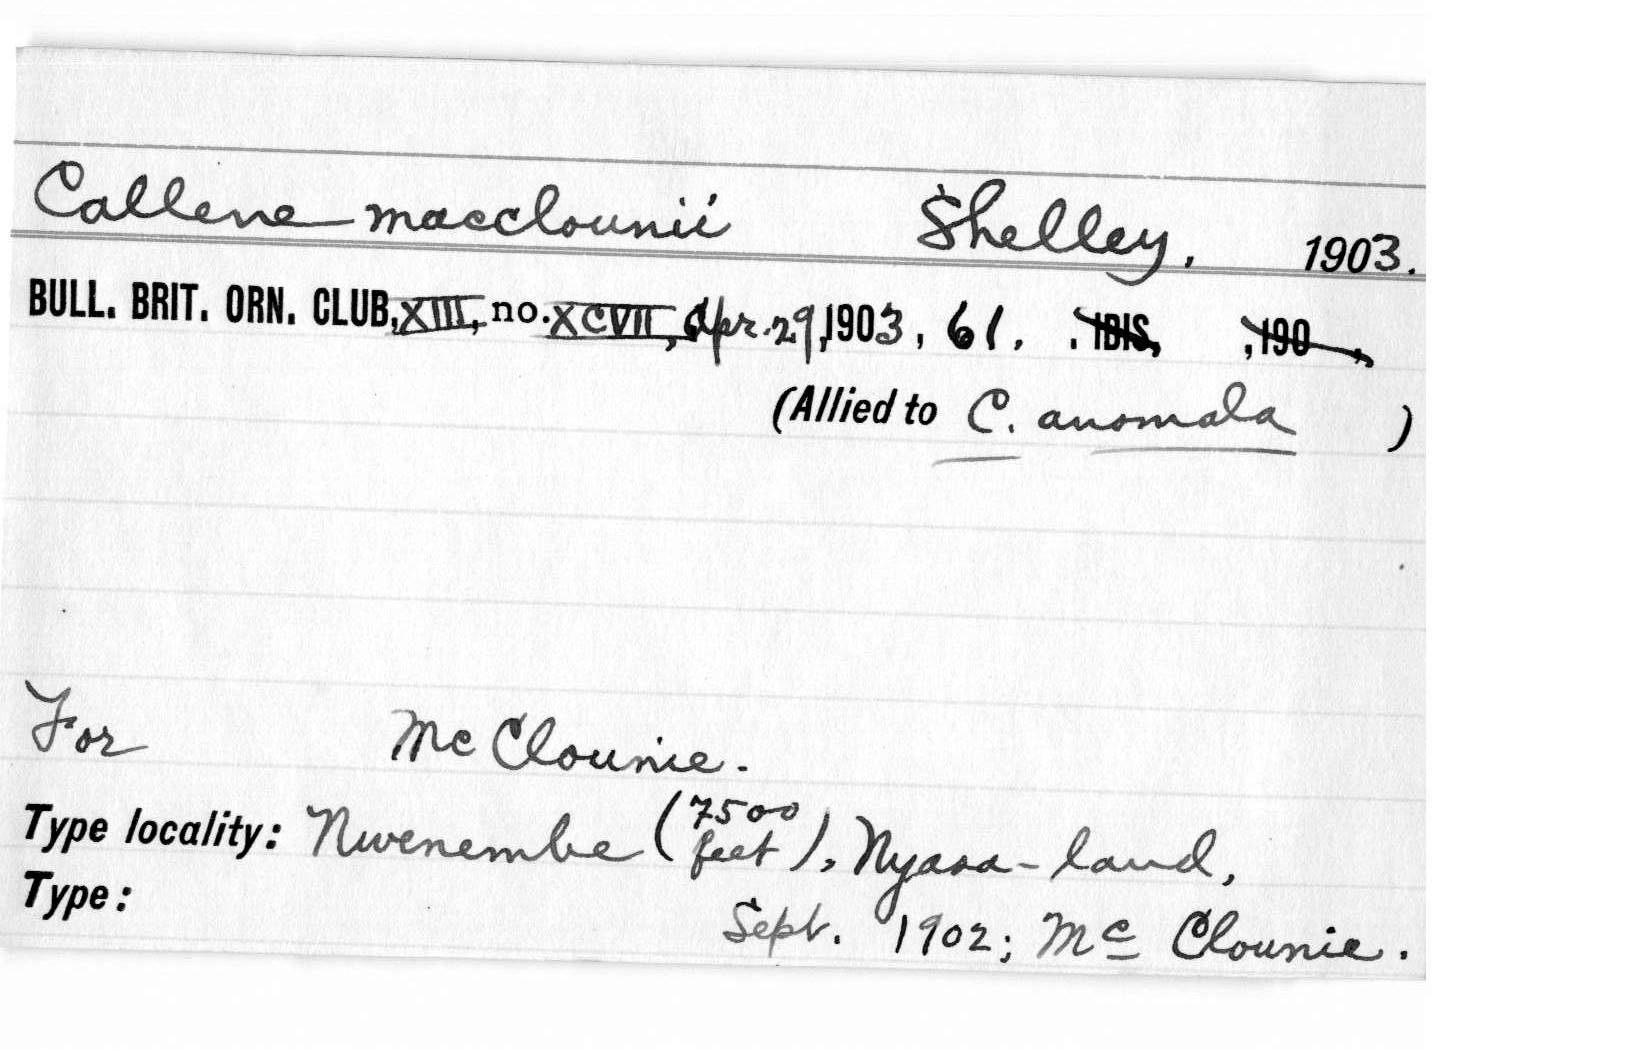 Callene macclounii Shelley, 1903.
BULL. BRIT. ORN. CLUB, XIII, no. XCVII, Apr. 29, 1903, 61. . IBIS, , 190 ,
(Allied to C. anomala )
For McClounie.
Type locality: Nwenembe (7500 feet), Nyasa-land,
Type: Sept. 1902; Mc Clounie.